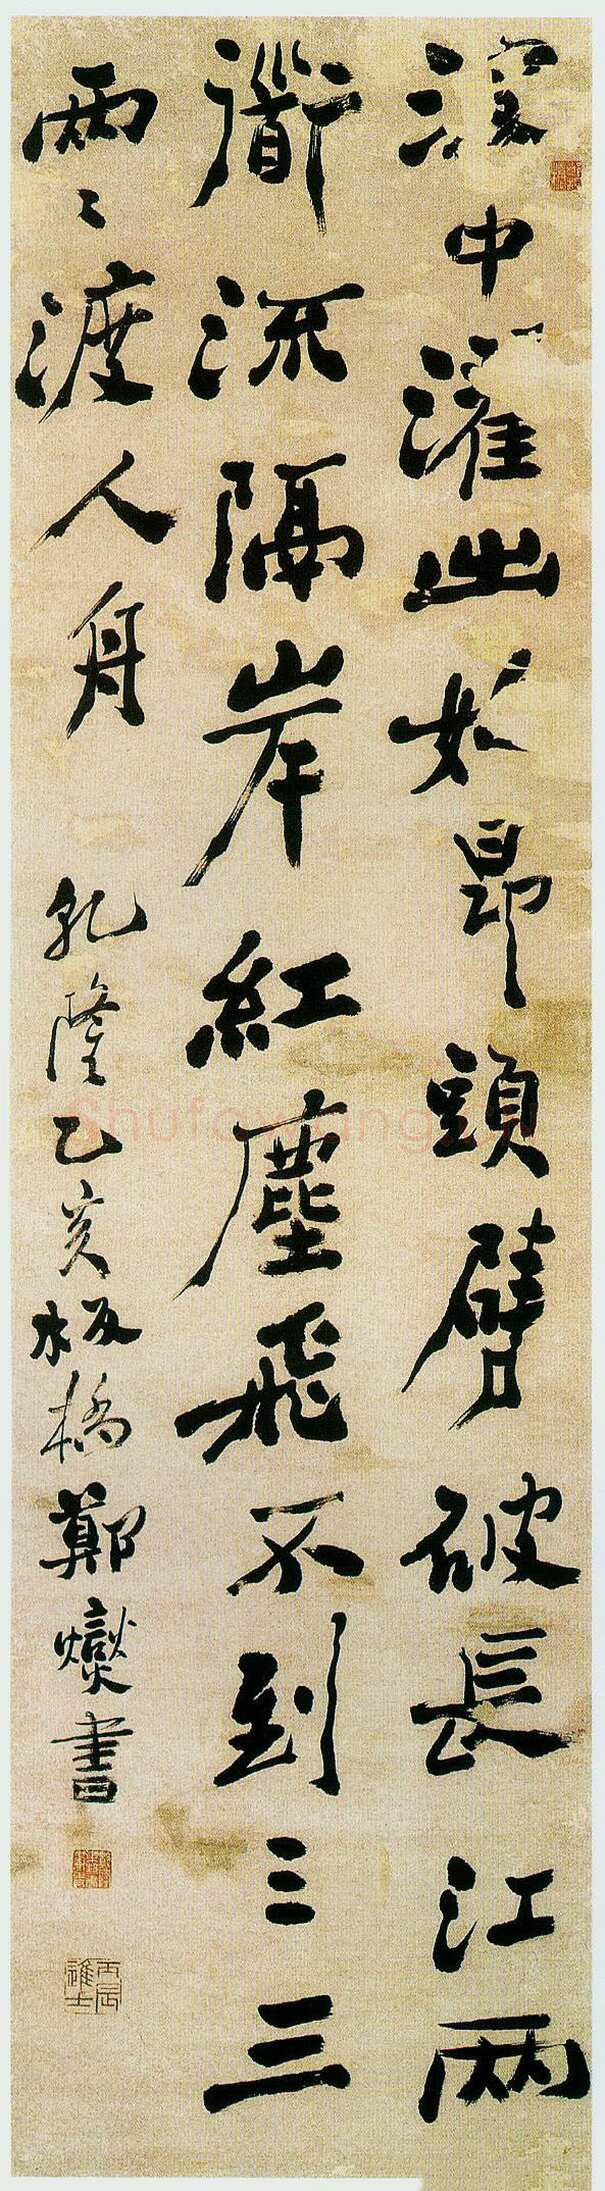 中濯出昂頭劈破長江兩
衜流隔岸紅塵飛不到三三
兩〻渡人舟 乾隆乙亥板橋鄭燮書
丙辰進士